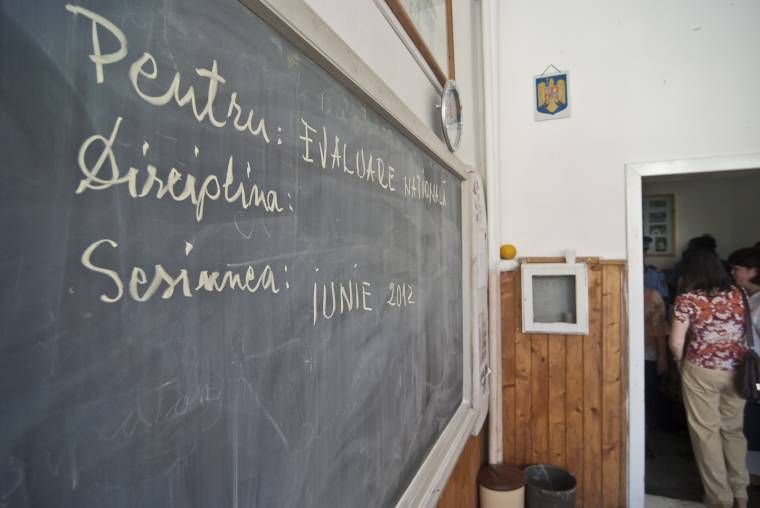 Pentru: EVALUARE NATIONALĂ
Disciplina:
Sesiunea: IUNIE 2012